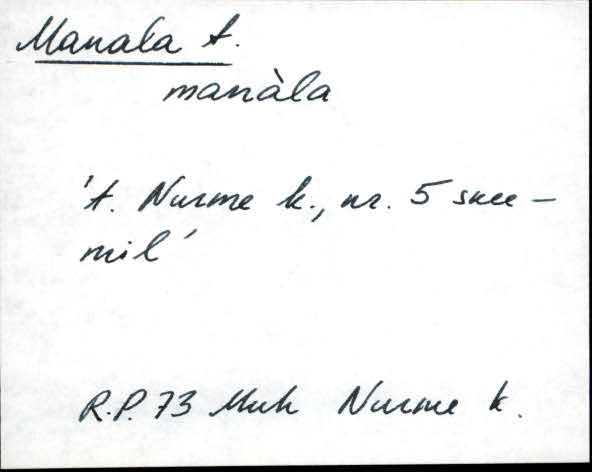 Manala t.
manàla
't. Nurme k., nr. 5 suu-
mil'
R.P. 73 Muh Nurme k.